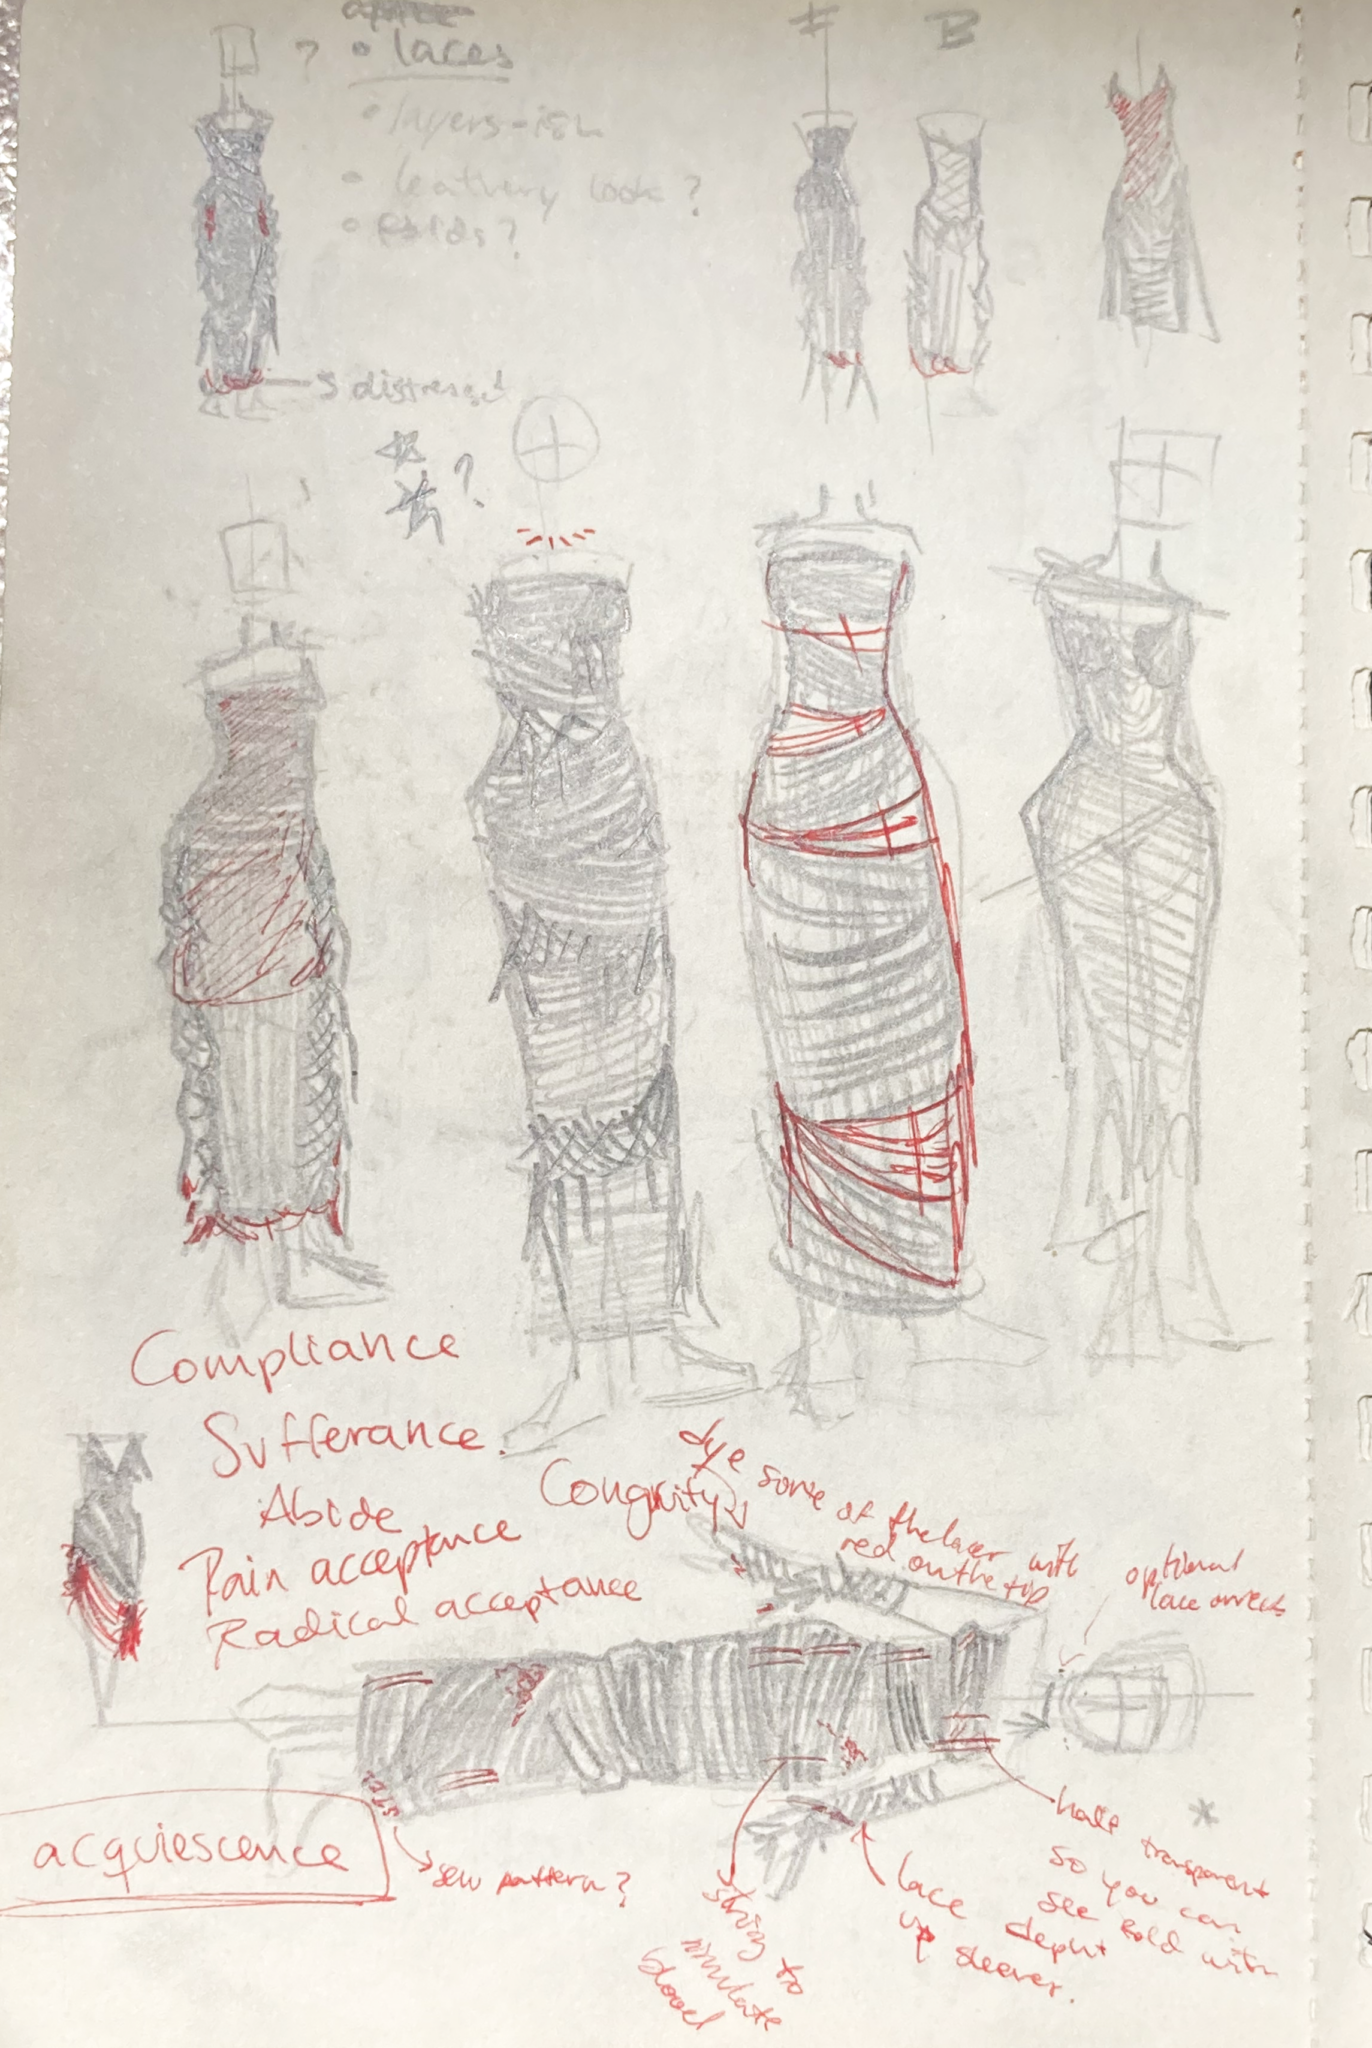 ?
• laces
• layers-ish
• leathery look?
• Folds?
F
B
distressed
?
Compliance
Sufferance.
Abide
Pain acceptance
Radical acceptance
Congruity
dye some of the lacer with
red on the tip
optional
lace
acquiescence
sew pattern?
string to
simulate
blood
lace
up
sleeves.
half transparent
so you can
see fold with
depht
*